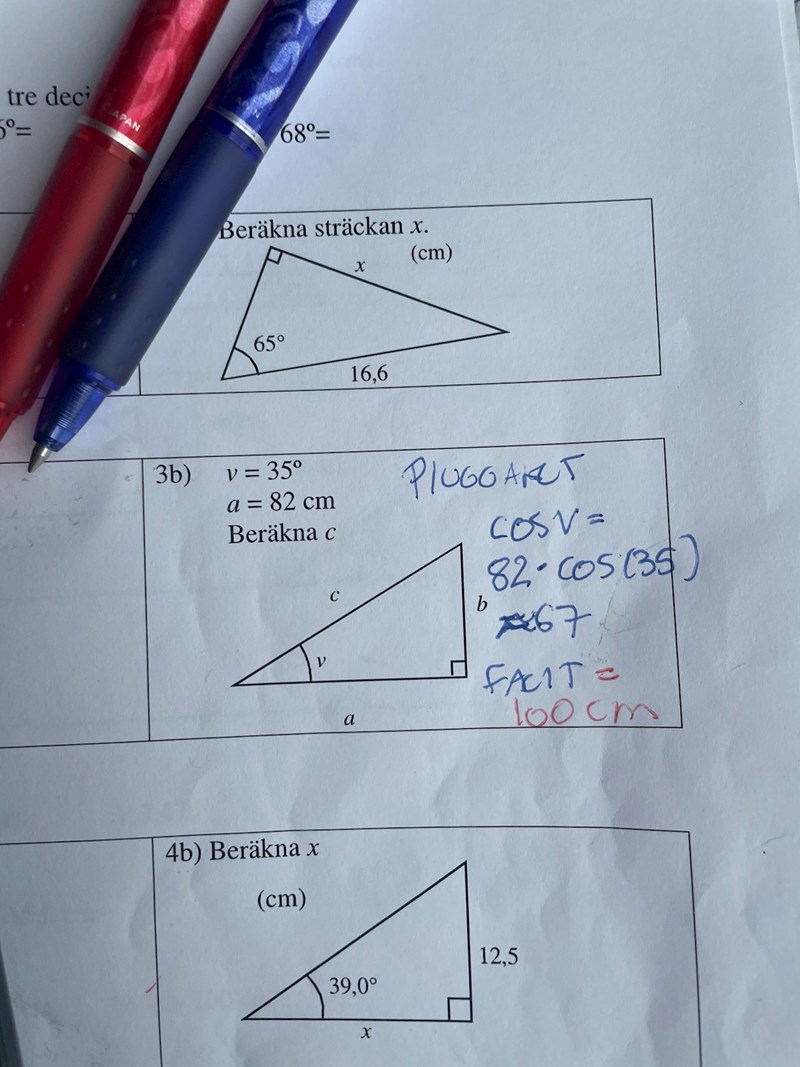 tre deci
6°=
68°=
JAPAN
JAPAN
Beräkna sträckan x.
(cm)
x
65°
16,6
3b) v = 35°
a = 82 cm
Beräkna c
c
v
b
a
PLUGGAKUT
COSV=
82·COS(35)
≈67
FACIT =
100 cm
4b) Beräkna x
(cm)
12,5
39,0°
x